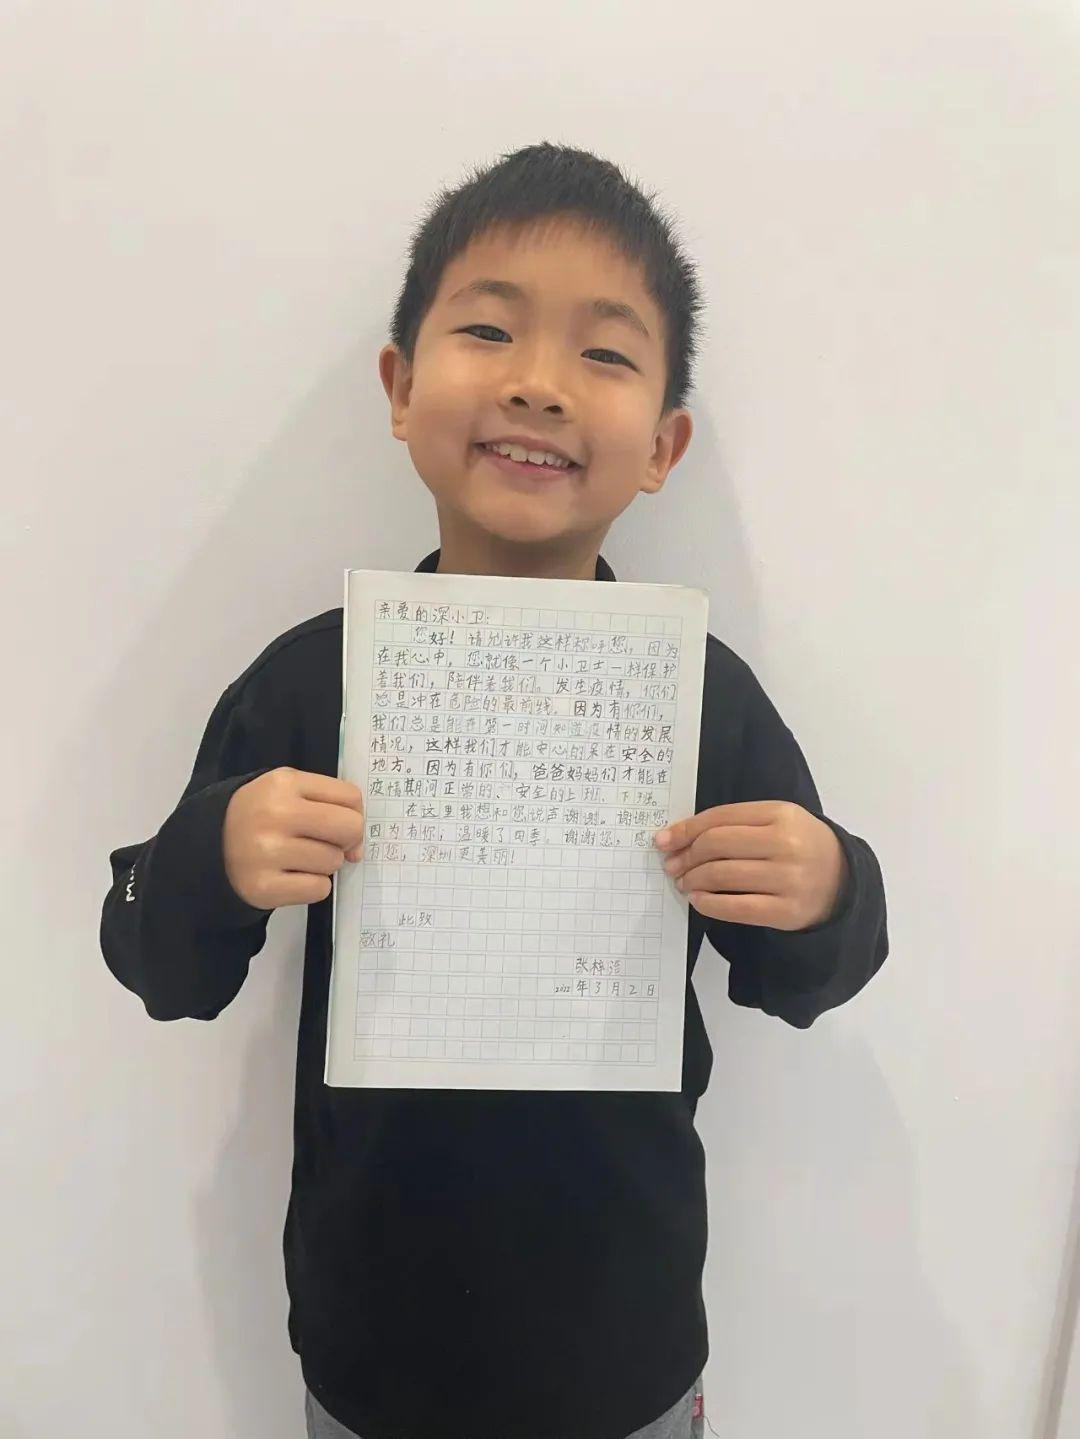 亲爱的深小卫：
您好！请允许我这样称呼您，因为
在我心中，您就像一个小卫士一样保护
着我们，陪伴着我们。发生疫情，你们
总是冲在危险的最前线。因为有你们，
我们总是能在第一时间知道疫情的发展
情况，这样我们才能安心的呆在安全的
地方。因为有你们，爸爸妈妈们才能在
疫情期间正常的、安全的上班、下班。
在这里我想和您说声谢谢。谢谢您，
因为有你，温暖了四季。谢谢您，感
有您，深圳更美丽！
此致
敬礼
张梓
2022年3月2日